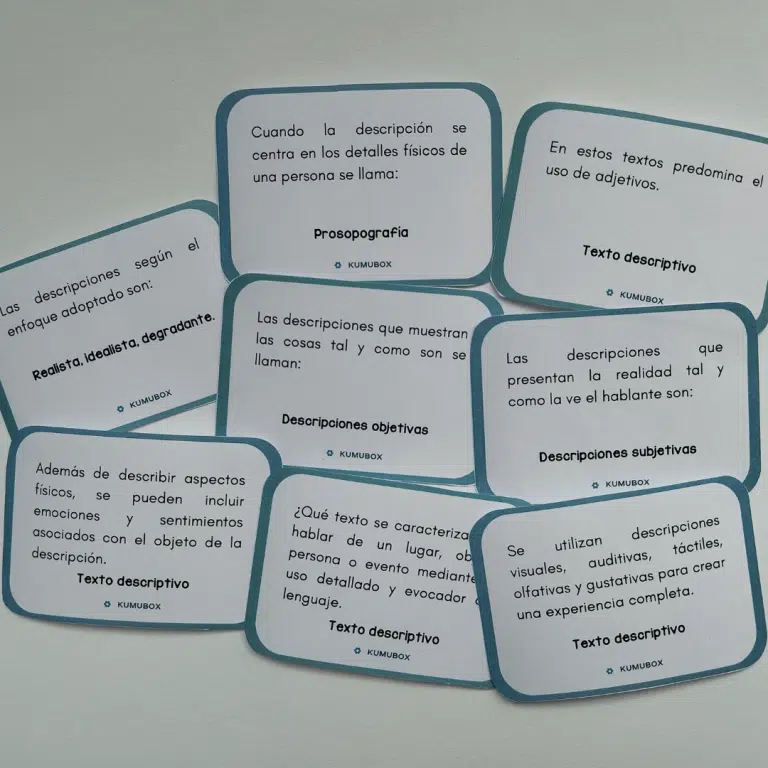 Cuando la descripción se
centra en los detalles físicos de
una persona se llama:
Prosopografía
KUMUBOX
En estos textos predomina el
uso de adjetivos.
Texto descriptivo
KUMUBOX
Las descripciones según el
enfoque adoptado son:
Realista, idealista, degradante.
KUMUBOX
Las descripciones que muestran
las cosas tal y como son se
llaman:
Descripciones objetivas
KUMUBOX
Las descripciones que
presentan la realidad tal y
como la ve el hablante son:
Descripciones subjetivas
KUMUBOX
Además de describir aspectos
físicos, se pueden incluir
emociones y sentimientos
asociados con el objeto de la
descripción.
Texto descriptivo
KUMUBOX
¿Qué texto se caracteriza
hablar de un lugar,
persona o evento mediante
uso detallado y evocador
lenguaje.
Texto descriptivo
KUMUBOX
Se utilizan descripciones
visuales, auditivas, táctiles,
olfativas y gustativas para crear
una experiencia completa.
Texto descriptivo
KUMUBOX